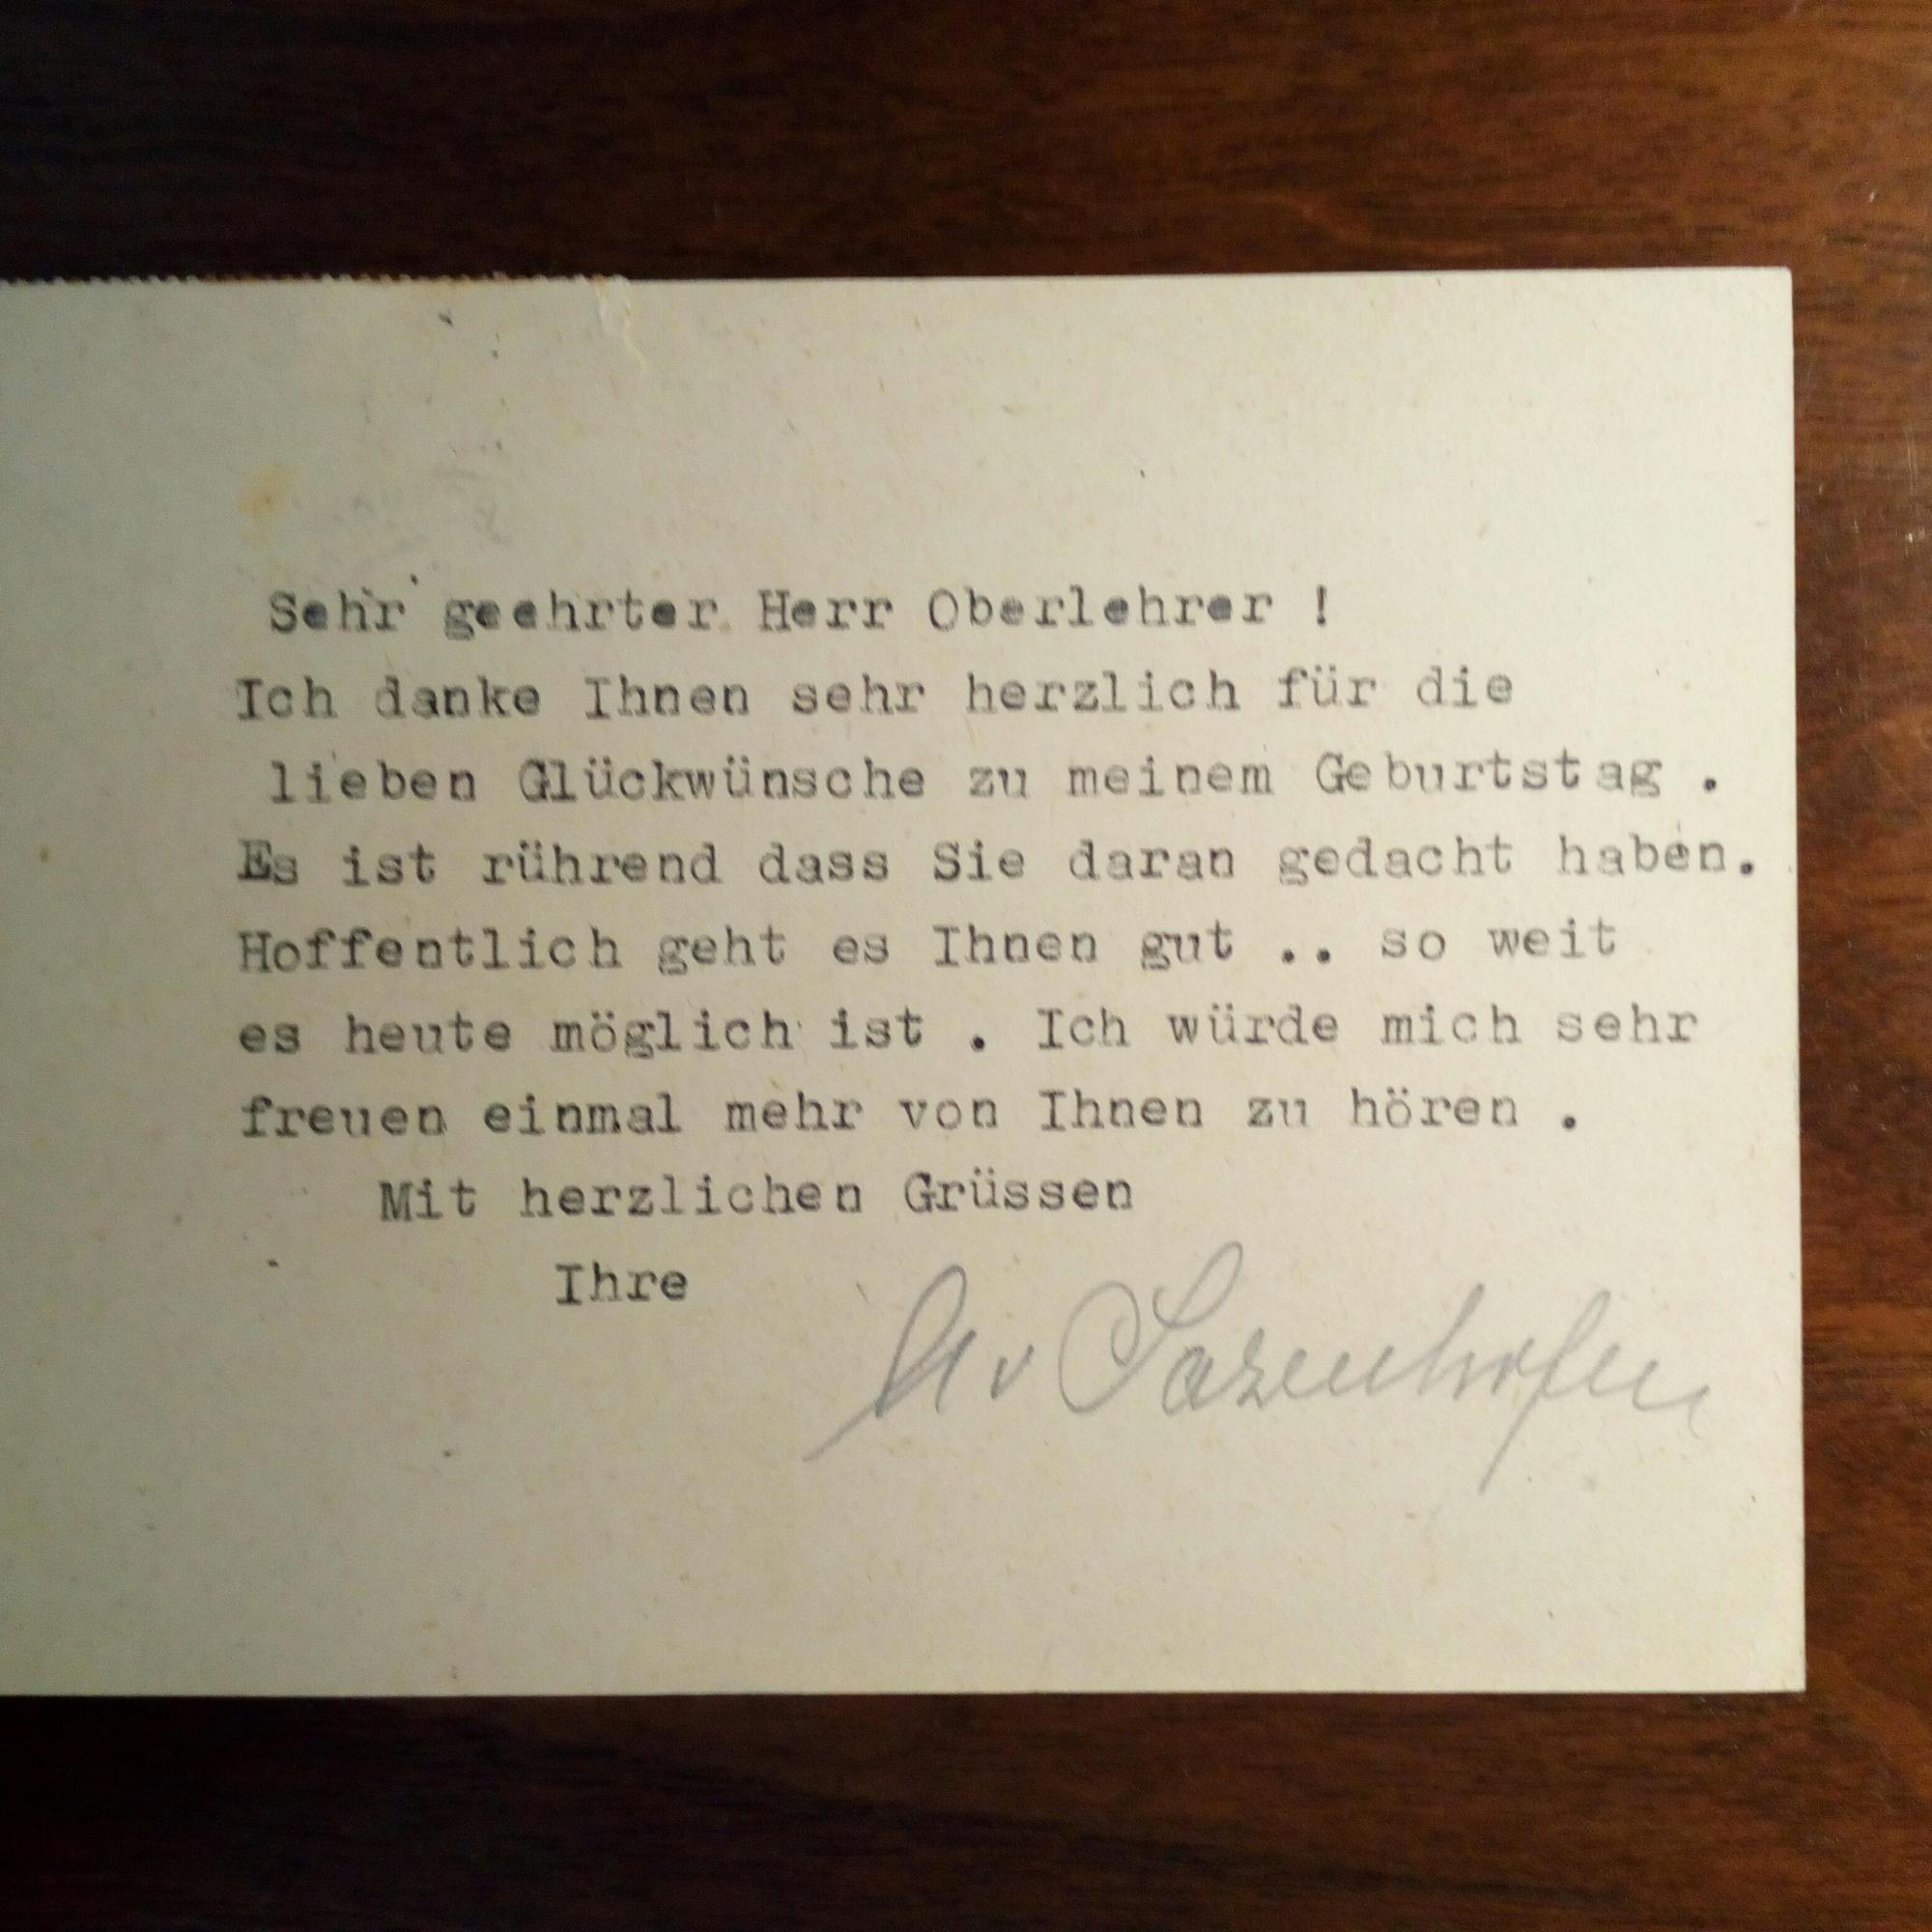 Sehr geehrter Herr Oberlehrer !
Ich danke Ihnen sehr herzlich für die
lieben Glückwünsche zu meinem Geburtstag .
Es ist rührend dass Sie daran gedacht haben.
Hoffentlich geht es Ihnen gut .. so weit
es heute möglich ist . Ich würde mich sehr
freuen einmal mehr von Ihnen zu hören .
Mit herzlichen Grüssen
Ihre
v Sazenhofen